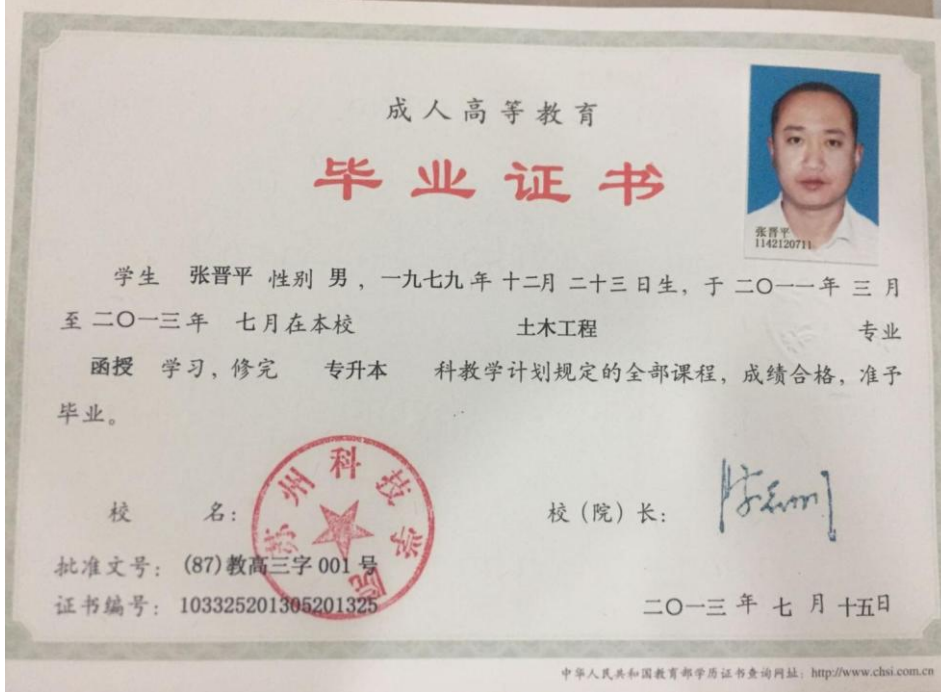 成人高等教育
毕业证书
张晋平
1142120711
学生 张晋平 性别 男 ，一九七九 年 十二月 二十三 日生，于 二〇一一年 三 月
至 二〇一三年 七月在本校 土木工程 专业
函授 学习，修完 专升本 科教学计划规定的全部课程，成绩合格，准予
毕业。
校 名：
苏州科技学院
校（院）长：
批准文号： (87)教高三字 001 号
证书编号： 103325201305201325
二〇一三 年 七 月 十五日
中华人民共和国教育部学历证书查询网址：http://www.chsi.com.cn